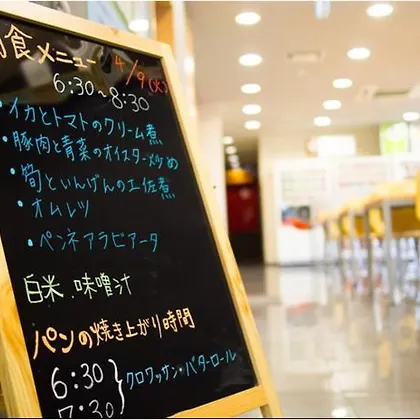 朝食メニュー 4/9(火)
6:30~8:30
・イカとトマトのクリーム煮
・豚肉と青菜のオイスター炒め
・筍といんげんの土佐煮
・オムレツ
・ペンネアラビアータ
白米、味噌汁
パンの焼き上がり時間
6:30
7:30
クロワッサン・バターロール